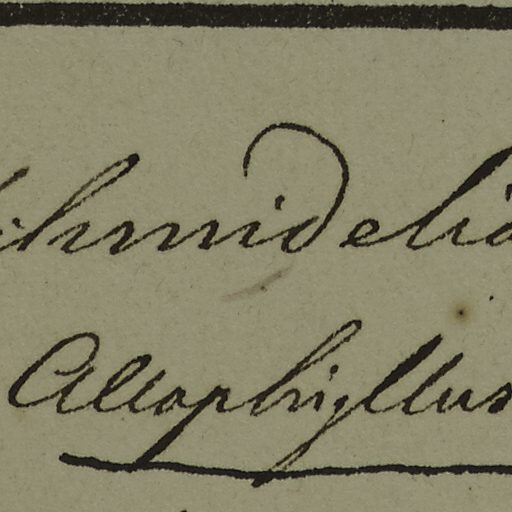 chmidelia
Allophyllus